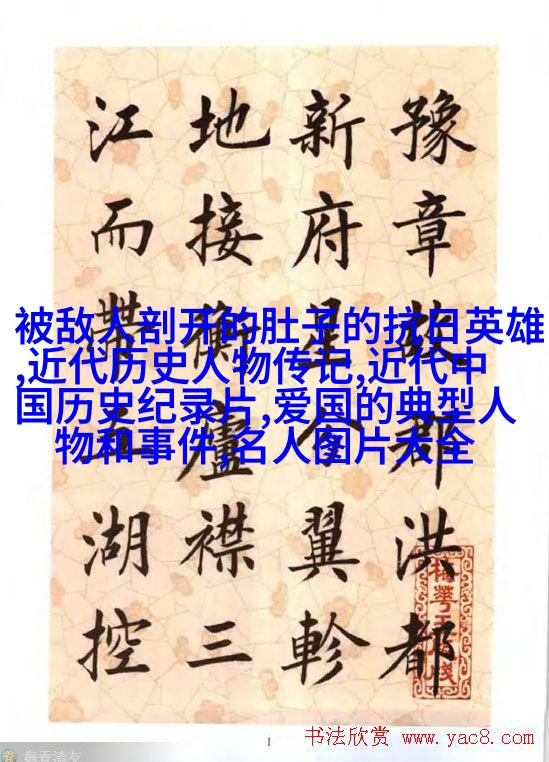 豫章故郡洪都
新府星分翼軫
地接衡廬襟三
江而帶五湖控
被敌人剖开的肚子的抗日英雄
,近代历史人物传记,近代中
国历史纪录片,爱国的典型人
物和事件,名人图片大全
1
书法欣赏 www.yac8.com
梅香清友